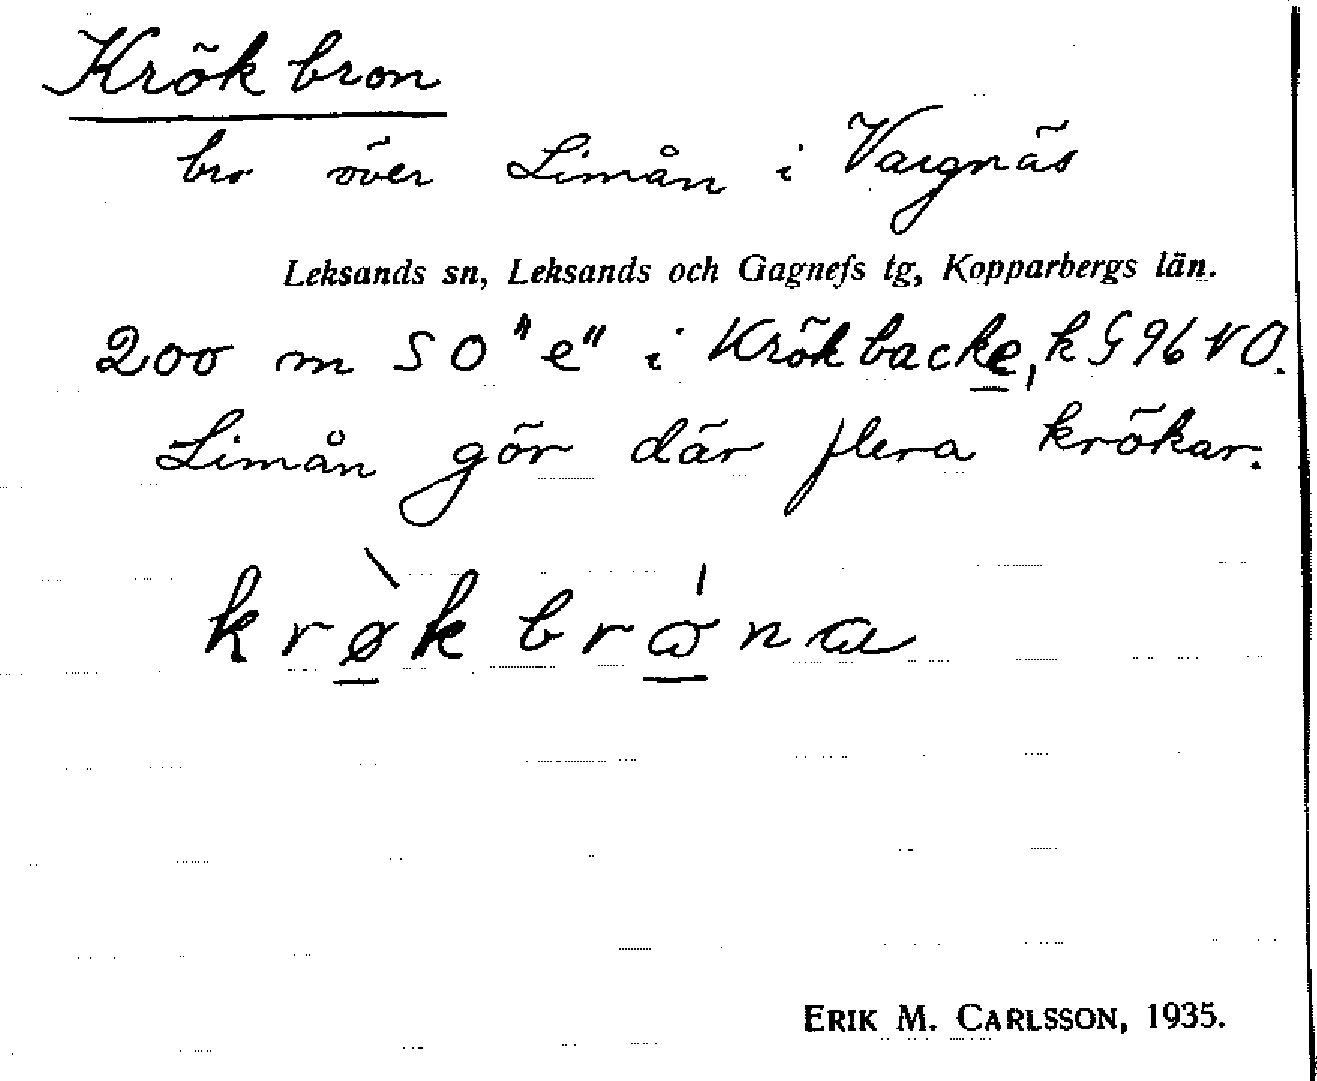 Krökbron
bro över Limån i Vargnäs
Leksands sn, Leksands och Gagnefs tg, Kopparbergs län.
200 m SO "e" i Krökbacke, k G 96 NO.
Limån gör där flera krökar.
krø̀kbrɷ́na
ERIK M. CARLSSON, 1935.